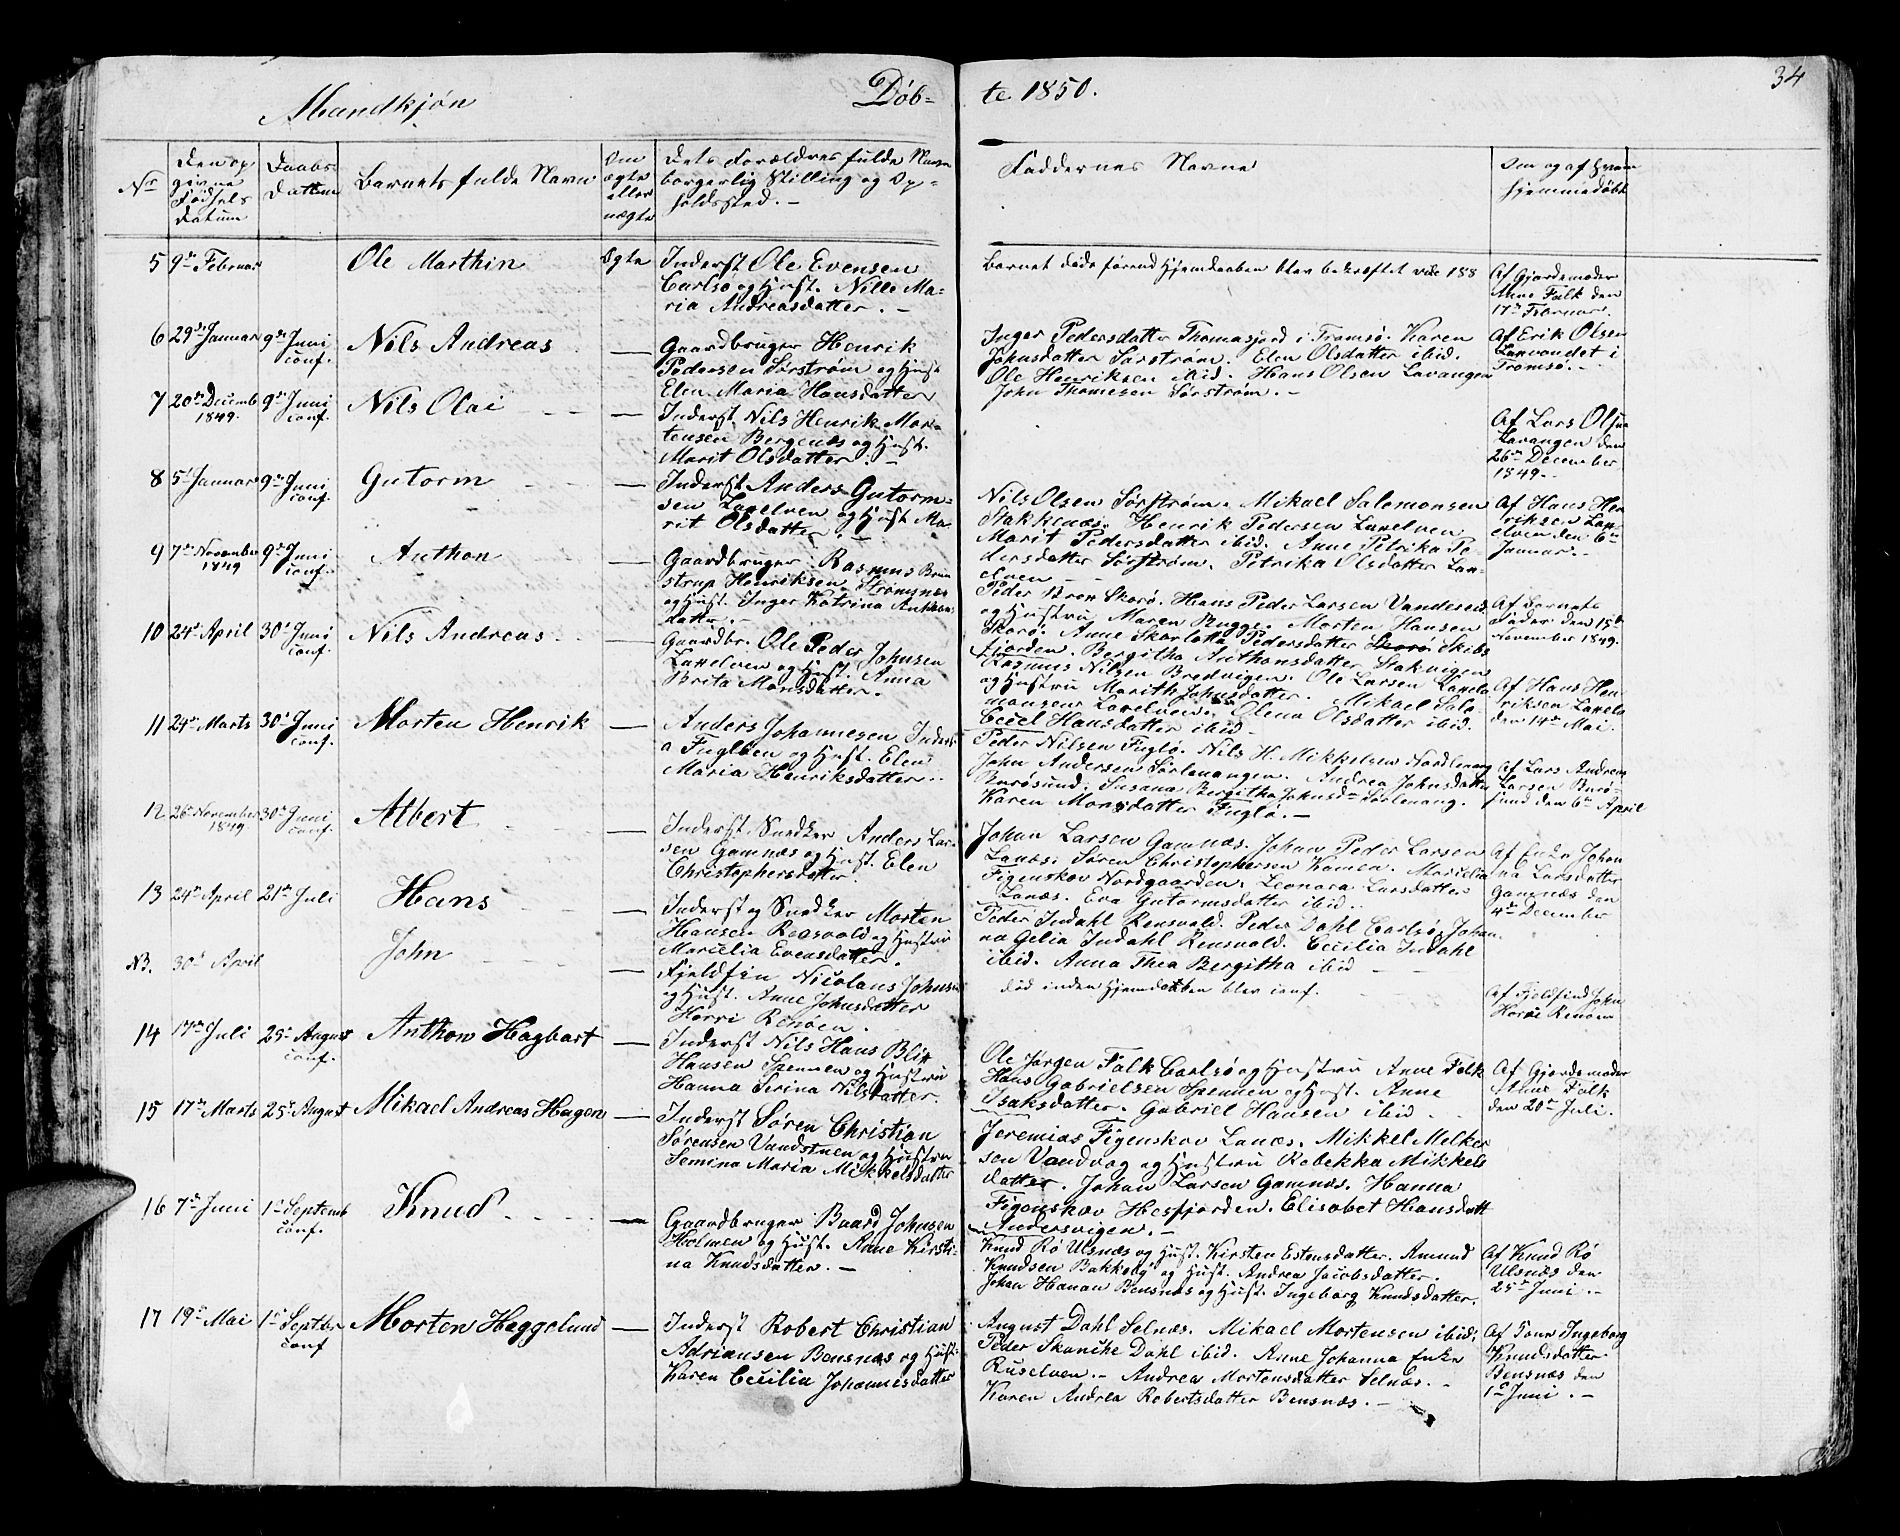 34
Mandkjøn
Døb-
te 1850.
Nr
Den op
givne
Fødsels
Datum
Daabs
Datum
Barnets fulde Navn
Om
ægte
eller
uægte
Dets Forældres fulde Navn
borgerlig Stilling og Op-
holdssted. -
Faddernes Navne
Om og af hvem
hjemmedøbt
5 9de Februar
Ole Marthin
Ægte
Inderst Ole Evensen
Carlsø og Hust. Nille Ma-
ria Andreasdatter. -
Barnet døde førend Hjemdaaben blev bekræftet
Af Gjordemoder
Anne Falk den
17de Februar.
6 29de Januar 9de Juni
conf.
Nils Andreas
Gaardbruger Henrik
Pedersen Sørstrøm og Hust
Elen Maria Hansdatter
Inger Pedersdatter Thomasjord i Tromsø. Karen
Johnsdatter Sørstrøm. Elen Olsdatter ibid.
Ole Henriksen ibid. Hans Olsen Lavangen
John Thomesen Sørstrøm. -
Af Erik Olsen
i
Tromsø. -
7 20de Decemb 9de Juni
1849. conf.
Nils Olai
Inderst Nils Henrik Mor-
tensen Bergenæs og Hust.
Marit Olsdatter. -
Af Lars Olsen
Lavangen den
26de December
1849. -
8 5t Januar 9de Juni
conf.
Gutorm
Inderst Anders Gutorm-
sen Laxelven og Hust Ma-
rit Olsdatter. -
Nils Olsen Sørstrøm. Mikael Salamonsen
Stakkenæs. Henrik Pedersen Laxelven
Marit Pedersdatter ibid. Anne Petrika Pe-
dersdatter Sørstrøm. Petrika Olsdatter Lax-
elven
Af Hans Hen
riksen Lax-
elven den 6te
Januar. -
9 7de November 9de Juni
1849 conf.
Anthon
Gaardbruger Rasmus
Henriksen Strømsnæs
og Hust. Inger Katrina
datter. -
Peder Skorø. Hans Peder Larsen
og Hustru Maren Bugge. Morten Hansen
Skorø. Anne Skarlotta Pedersdatter Skibs
fjorden. Bergitha Anthonsdatter Stakvigen
Af Barnets
Fader den 15de
November 1849.
10 24de April 30te Juni
conf.
Nils Andreas
Gaardbr. Ole Peder Johnsen
Laxelven og Hust. Anna
Brita Monsdatter.
Rasmus Nilsen Bredvigen. Ole Larsen Laxelv
og Hustru Marith Johnsdatter. Mikael Sala-
monsen Laxelven. Olena Olsdatter ibid.
Cecil Hansdatter ibid
Af Hans Hen-
riksen Laxelv
den 14de Mai.
11 24de Marts 30te Juni
conf.
Morten Henrik
Anders Johannesen Inderst
a Fugløen og Hust. Elen
Maria Henriksdatter. -
Peder Nilsen Fuglø. Nils H. Mikkelsen Nordlenang
John Andersen Sørlenangen. Andrea Johnsdatter
Burøsund. Susana Bergitha Johnsd
Karen Monsdatter Fuglø. -
Af Lars Andreas
Larsen Burø-
sund den 6te April
12 26de November 30te Juni
1849. conf.
Albert
Inderst. Snedker Anders Lar-
sen Gamnæs og Hust. Elen
Christophersdatter.
Johan Larsen Gamnæs. Johan Peder Larsen
Lanæs. Søren Christophersen Kamen. Marielia
Figenskov Nordgaarden. Leonara Larsdatter
Lanæs. Eva Gutormsdatter ibid.
Af Enke Johan
na Larsdatter
Gamnæs den
4de December
13 24de April 21de Juli
Hans
Inderst og Snedker Morten
Hansen Rensvold og Hustru
Marielia Evensdatter.
Peder Indahl Rensvold. Peder Dahl Carlsø. Johan
na Gelia Indahl Rensvald. Cecilia Indahl
ibid. Anna Thea Bergitha ibid
NB. 30te April
John
Fjeldfin Nicolaus Johnsen
og Hust. Anne Johnsdatter
Horri Renøen.
død inden Hjemdaaben blev conf.
Af Fjeldfind John
Horri Renøen
14 17de Juli 25te August
conf.
Anthon Hagbart
Inderst Nils Hans Blix
Hansen Spennen og Hustru
Hanna Serina Nilsdatter.
Ole Jørgen Falk Carlsø og Hustru Anne Falk
Hans Gabrielsen Spennen og Hust. Anne
Isaksdatter. Gabriel Hansen ibid.
Af Gjordemoder
Anne Falk
den 20de Juli.
15 17de Marts 25te August
Mikael Andreas Hagen
Inderst Søren Christian
Sørensen Vandstuen og Hustru
Semina Maria Mikkelsdatter
Jeremias Figenskov Lanæs. Mikkel Melker
sen Vandvag og Hustru Rebekka Mikkels
datter. Johan Larsen Gamnæs. Hanna
Figenskov Hesfjorden. Elisabet Hansdatt
Andersvigen. -
16 7de Juni 1ste Septemb
conf.
Knud
Gaardbruger Baard Johnsen
Holmen og Hust. Anne Kirsti-
na Knudsdatter. -
Knud Rø Ulsnæs og Hust. Kirsten Estensdatter. Amund
Knudsen Bakkeby og Hust. Andrea Jacobsdatter.
Johan Hanan Bensnæs og Hust. Ingeborg Knudsdatter.
Af Knud Rø
Ulsnæs den
25de Juni. -
17 19de Mai 1ste Septbr
conf
Morten Heggelund
Inderst Robert Christian
Adriansen Bensnæs og Hust.
Karen Cecilia Johannesdatter
August Dahl Selnæs. Mikael Mortensen ibid:
Peder Skanche Dahl ibid. Anne Johanna Enke
Ruselven. - Andrea Mortensdatter Selnæs. -
Karen Andrea Robertsdatter Bensnæs. -
Af Ingeborg
Knudsdatter
Bensnæs den
1ste Juni. -